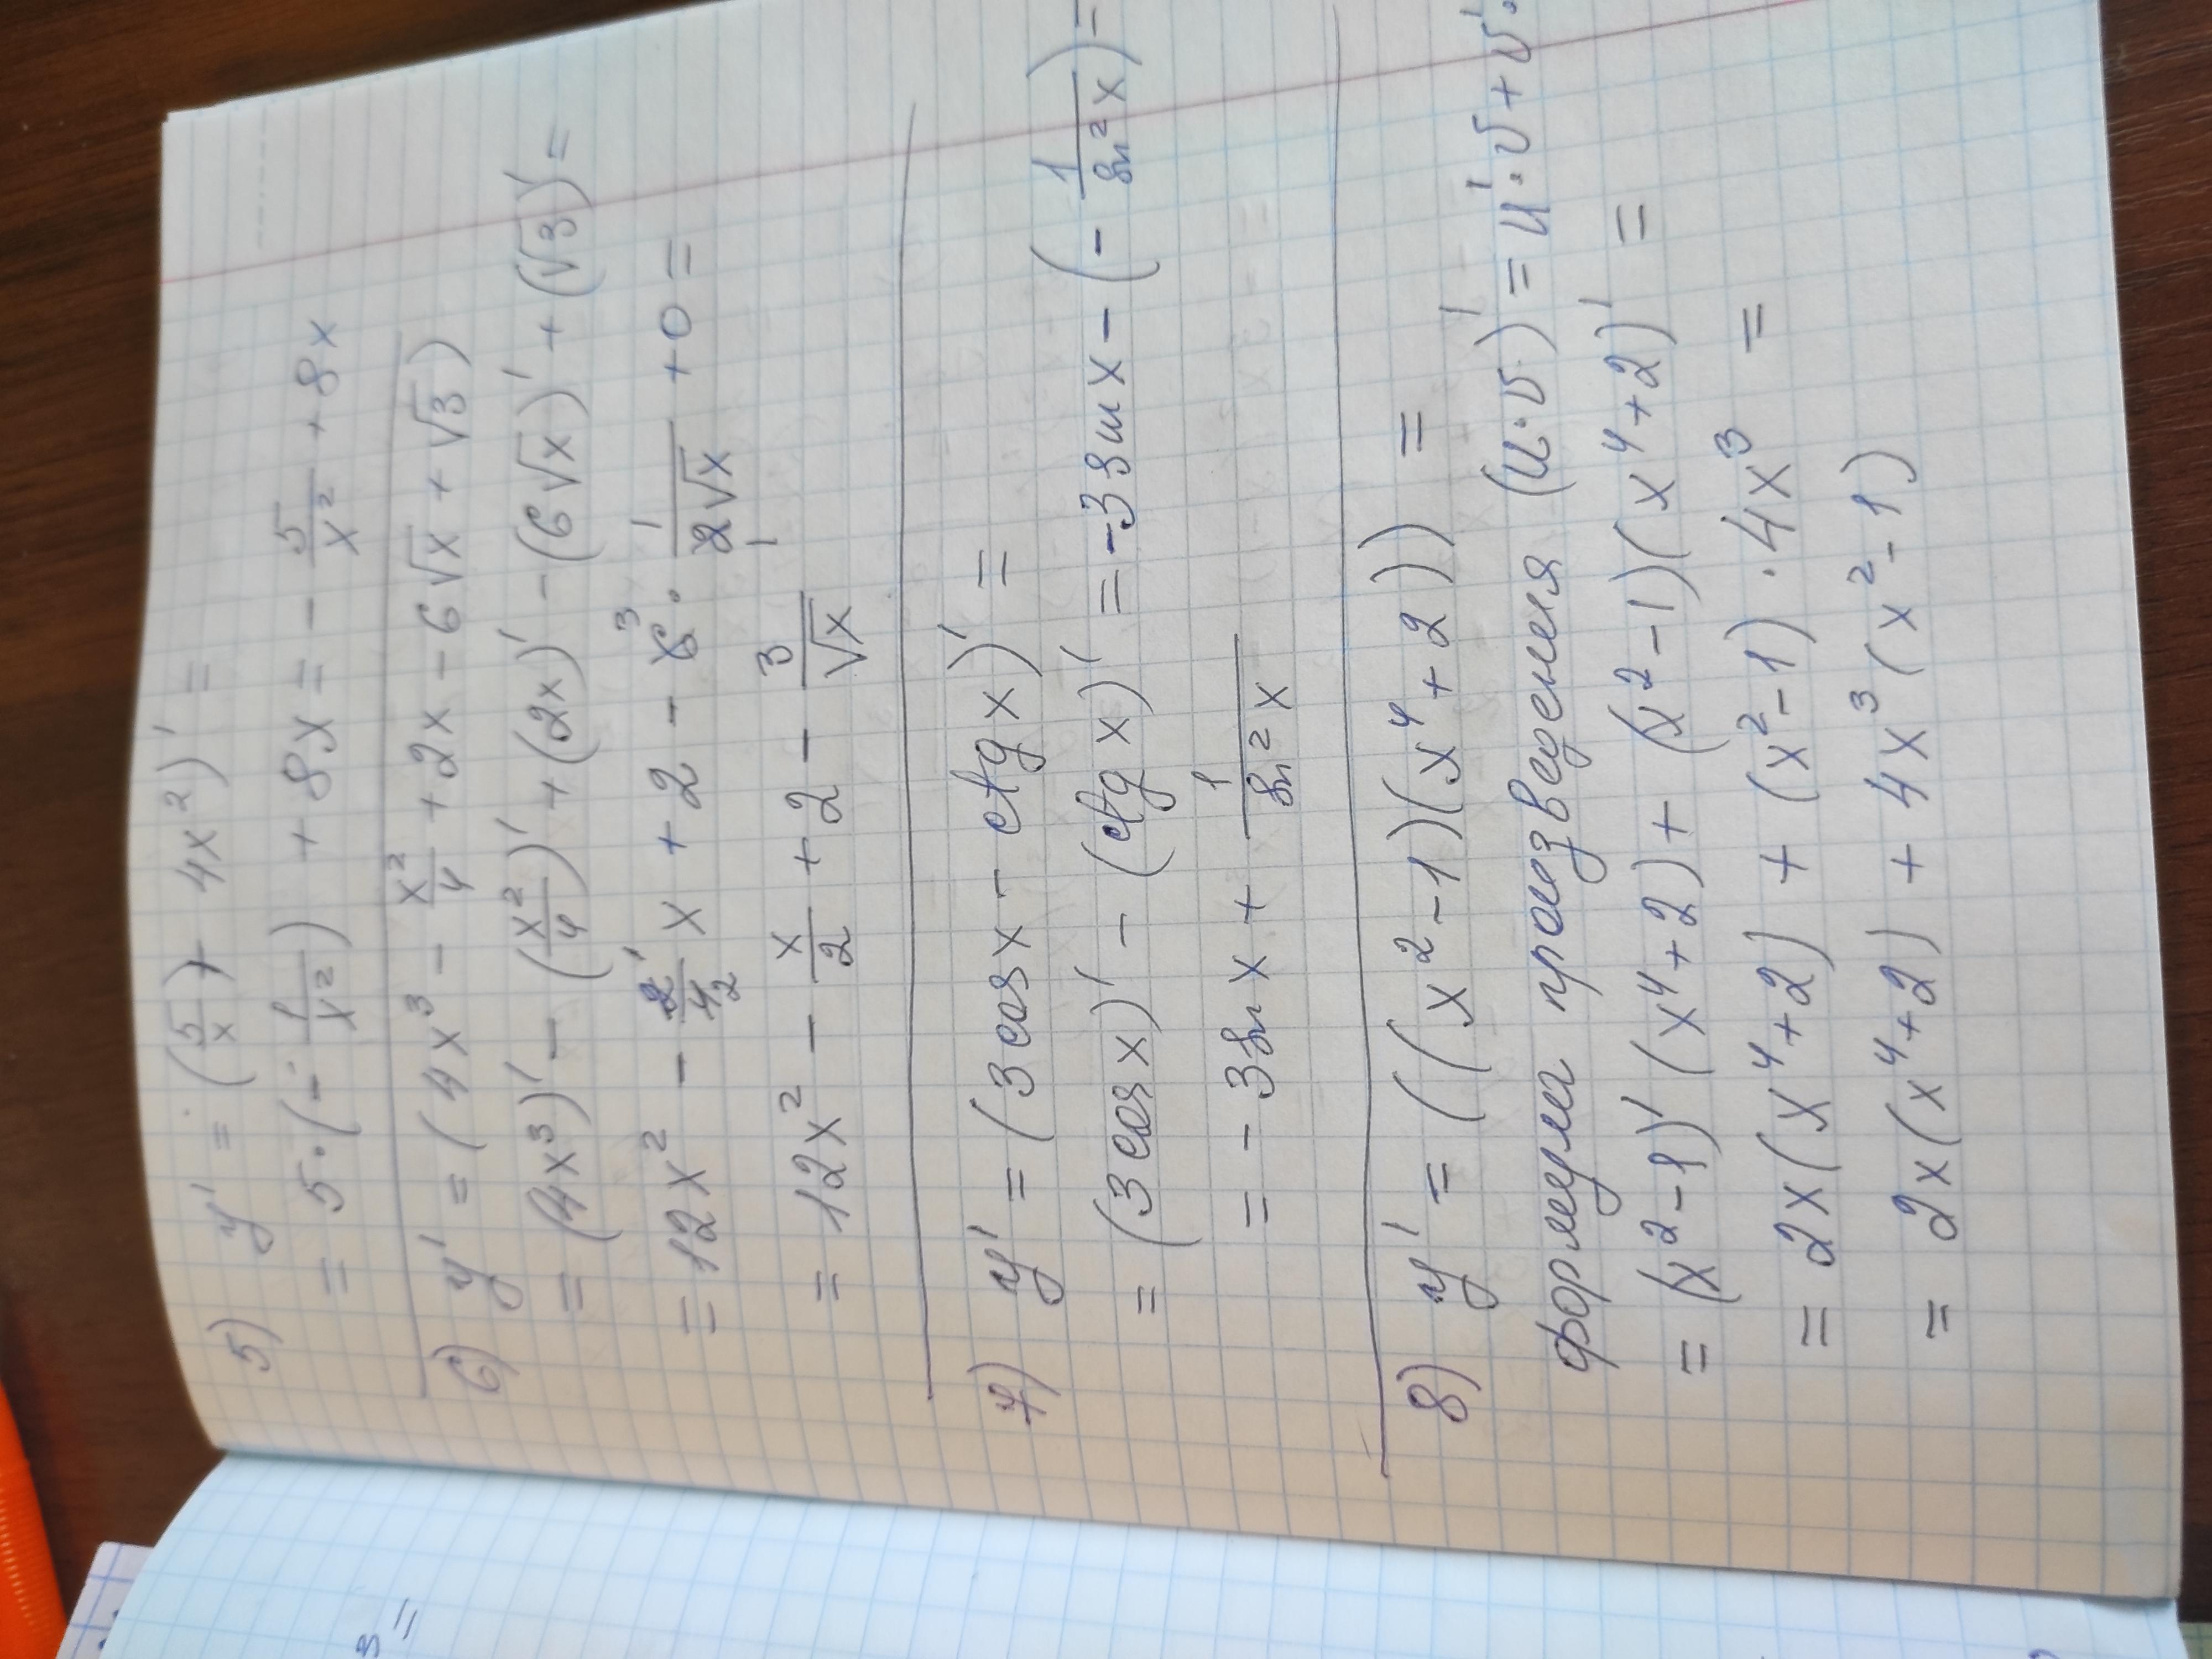 5) y' = (5/x + 4x²)' =
= 5·(-1/x²) + 8x = - 5/x² + 8x
6) y' = (4x³ - x²/4 + 2x - 6√x + √3)
= (4x³)' - (x²/4)' + (2x)' - (6√x)' + (√3)' =
= 12x² - 2/4 x + 2 - 6 · 1/2√x + 0 =
= 12x² - x/2 + 2 - 3/√x
7) y' = (3 cos x - ctg x)' =
= (3 cos x)' - (ctg x)' = -3 sin x - (- 1/sin² x) =
= - 3 sin x + 1/sin² x
8) y' = ((x² - 1)(x⁴ + 2))' =
формула произведения (u·v)' = u'·v + v'·
= (x² - 1)' (x⁴ + 2) + (x² - 1)(x⁴ + 2)' =
= 2x(x⁴ + 2) + (x² - 1) · 4x³ =
= 2x(x⁴ + 2) + 4x³(x² - 1)
3 =